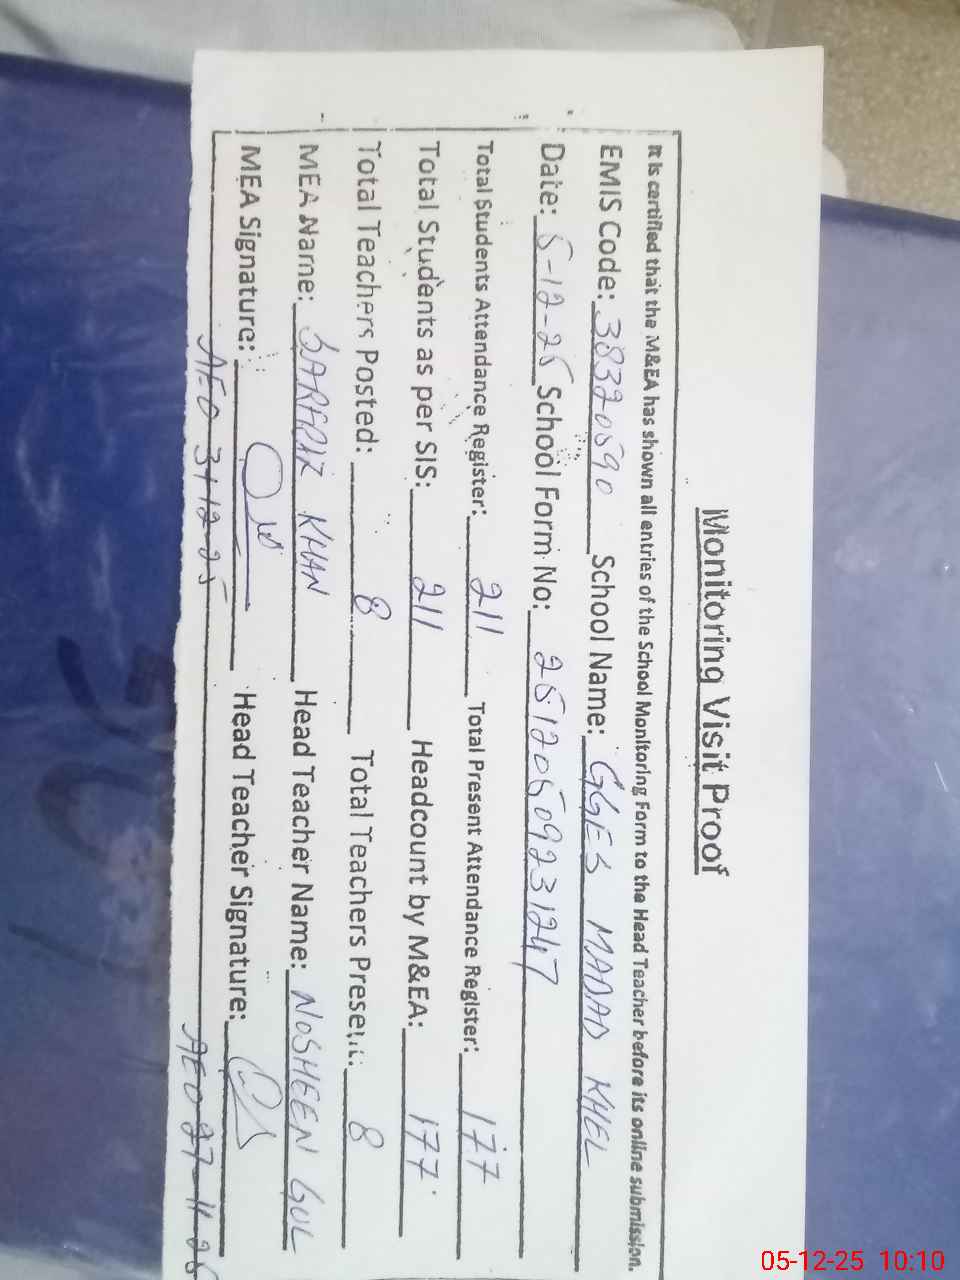 Monitoring Visit Proof
It is certified that the M&EA has shown all entries of the School Monitoring Form to the Head Teacher before its online submission.
EMIS Code: 38320590 School Name: GGES MADAD KHEL
Date: 5-12-25 School Form No: 25120509231247
Total Students Attendance Register: 211 Total Present Attendance Register: 177
Total Students as per SIS: 211 Headcount by M&EA: 177
Total Teachers Posted: 8 Total Teachers Present: 8
MEA Name: SARFRAZ KHAN Head Teacher Name: NOSHEEN GUL
MEA Signature: Head Teacher Signature:
AEO 3-12-25 AEO 27-11-25
05-12-25 10:10